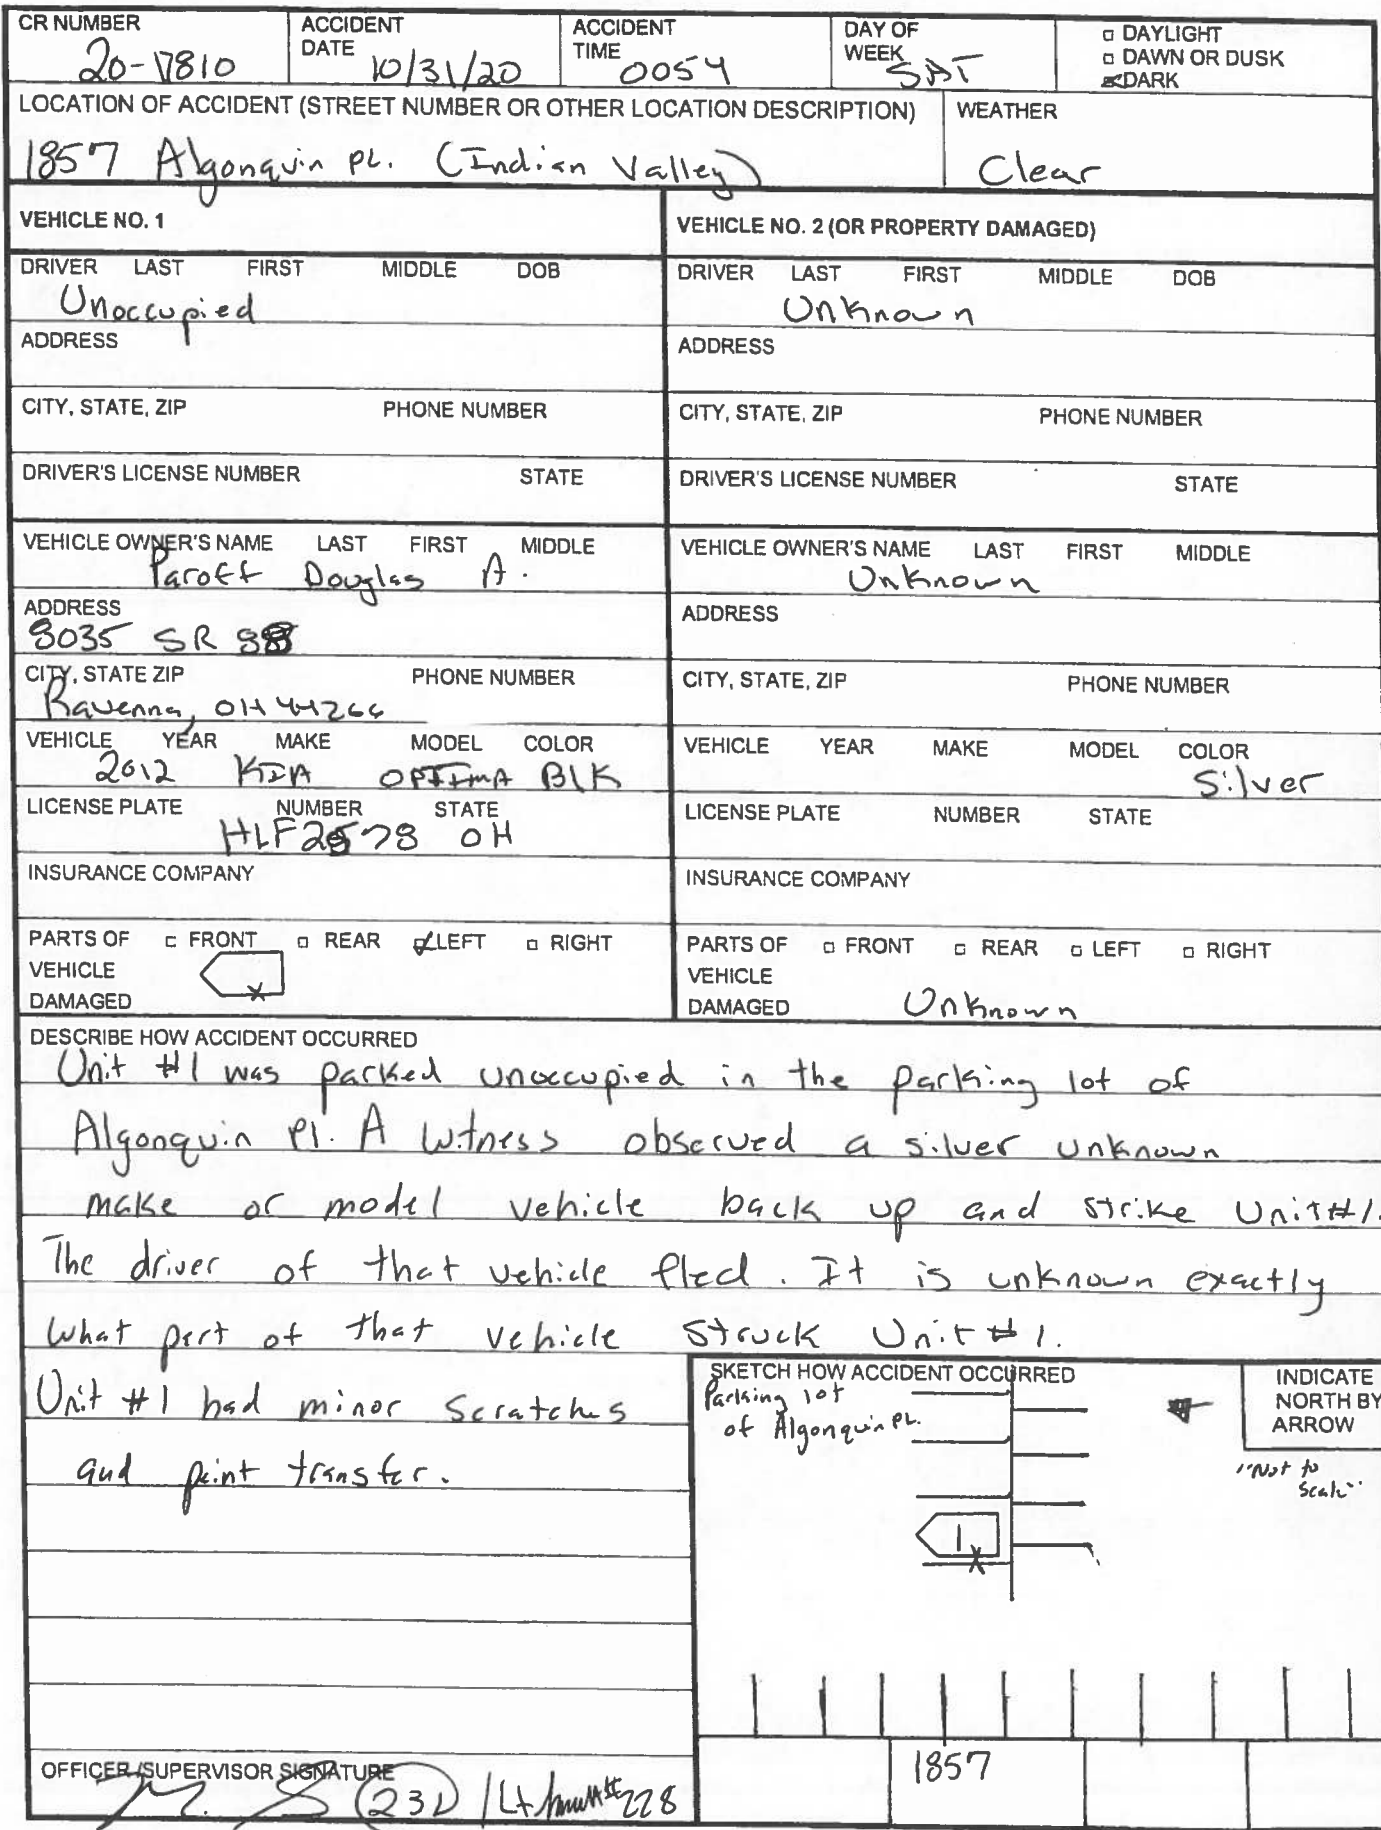 CR NUMBER
20-17810
ACCIDENT
DATE 10/31/20
ACCIDENT
TIME 0054
DAY OF
WEEK SAT
DAYLIGHT
DAWN OR DUSK
DARK
LOCATION OF ACCIDENT (STREET NUMBER OR OTHER LOCATION DESCRIPTION)
1857 Algonquin PL. (Indian Valley)
WEATHER
Clear
VEHICLE NO. 1
DRIVER LAST FIRST MIDDLE DOB
Unoccupied
ADDRESS
CITY, STATE, ZIP PHONE NUMBER
DRIVER'S LICENSE NUMBER STATE
VEHICLE OWNER'S NAME LAST FIRST MIDDLE
Paroff Douglas A.
ADDRESS
8035 SR 88
CITY, STATE ZIP PHONE NUMBER
Ravenna, OH 44266
VEHICLE YEAR MAKE MODEL COLOR
2012 KIA OPTIMA BlK
LICENSE PLATE NUMBER STATE
HLF2578 OH
INSURANCE COMPANY
PARTS OF FRONT REAR LEFT RIGHT
VEHICLE
DAMAGED
VEHICLE NO. 2 (OR PROPERTY DAMAGED)
DRIVER LAST FIRST MIDDLE DOB
Unknown
ADDRESS
CITY, STATE, ZIP PHONE NUMBER
DRIVER'S LICENSE NUMBER STATE
VEHICLE OWNER'S NAME LAST FIRST MIDDLE
Unknown
ADDRESS
CITY, STATE, ZIP PHONE NUMBER
VEHICLE YEAR MAKE MODEL COLOR
Silver
LICENSE PLATE NUMBER STATE
INSURANCE COMPANY
PARTS OF FRONT REAR LEFT RIGHT
VEHICLE
DAMAGED Unknown
DESCRIBE HOW ACCIDENT OCCURRED
Unit #1 was parked unoccupied in the parking lot of
Algonquin Pl. A witness observed a silver unknown
make or model vehicle back up and strike Unit #1.
The driver of that vehicle fled. It is unknown exactly
what part of that vehicle struck Unit #1.
Unit #1 had minor scratches
and paint transfer.
SKETCH HOW ACCIDENT OCCURRED
Parking lot
of Algonquin PL.
INDICATE
NORTH BY
ARROW
"Not to
Scale"
1
1857
OFFICER/SUPERVISOR SIGNATURE
231 / Lt #228